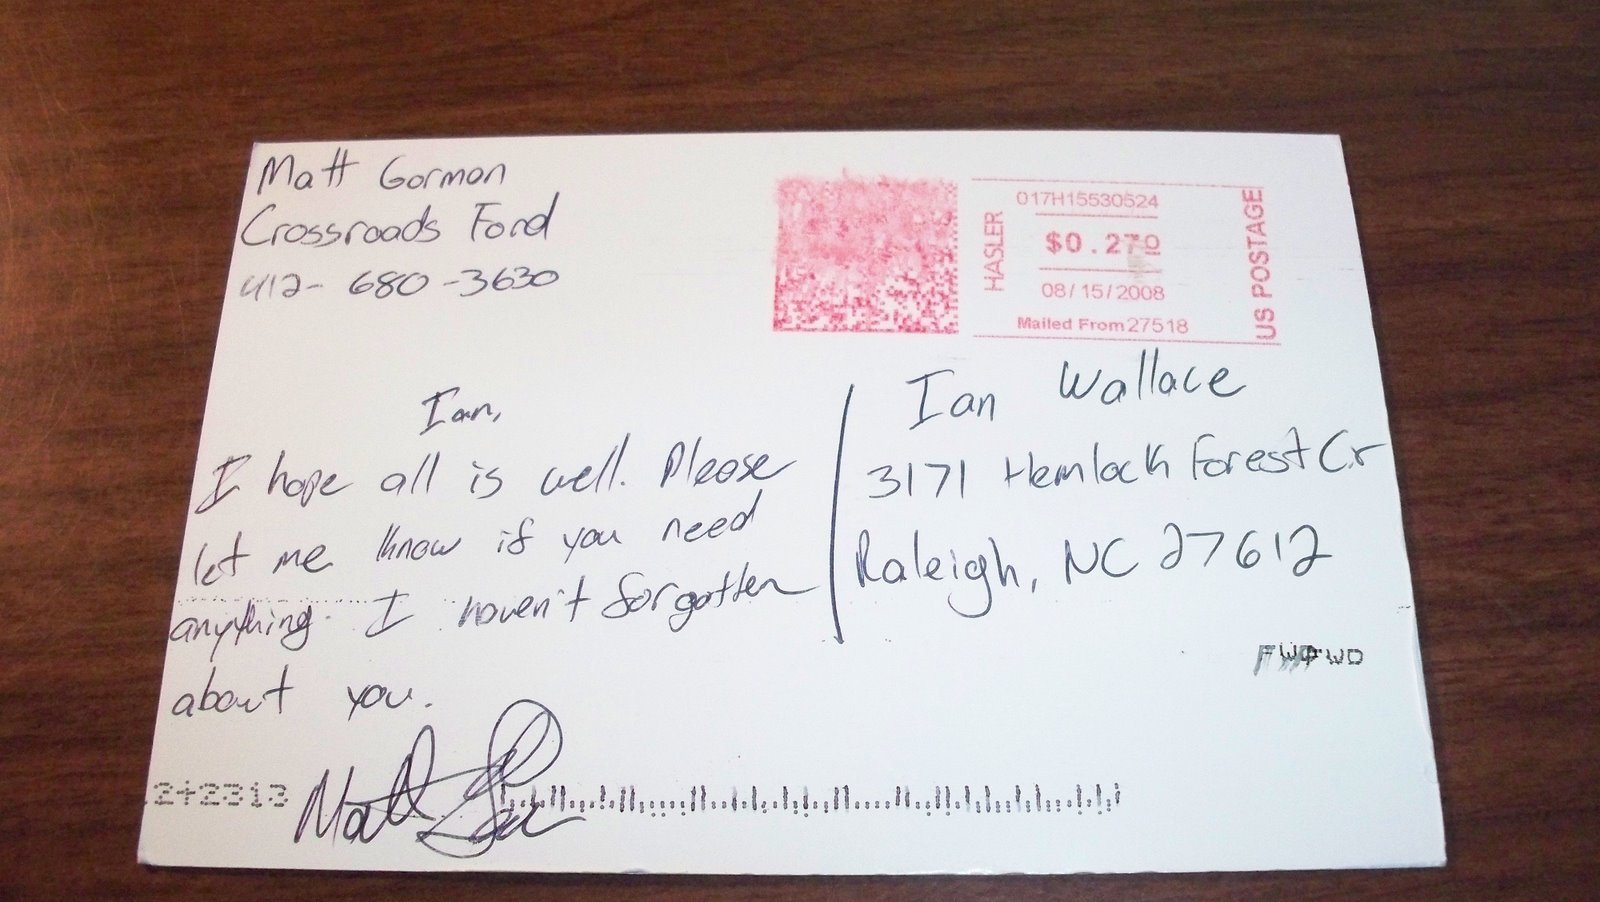 Matt Gorman
Crossroads Ford
412-680-3630
HASLER
017H15530524
$0.270
08/15/2008
Mailed From 27518
US POSTAGE
Ian,
I hope all is well. Please
let me know if you need
anything. I haven't forgotten
about you.
Matt
Ian Wallace
3171 Hemlock Forest Cr
Raleigh, NC 27612
FWD
242313